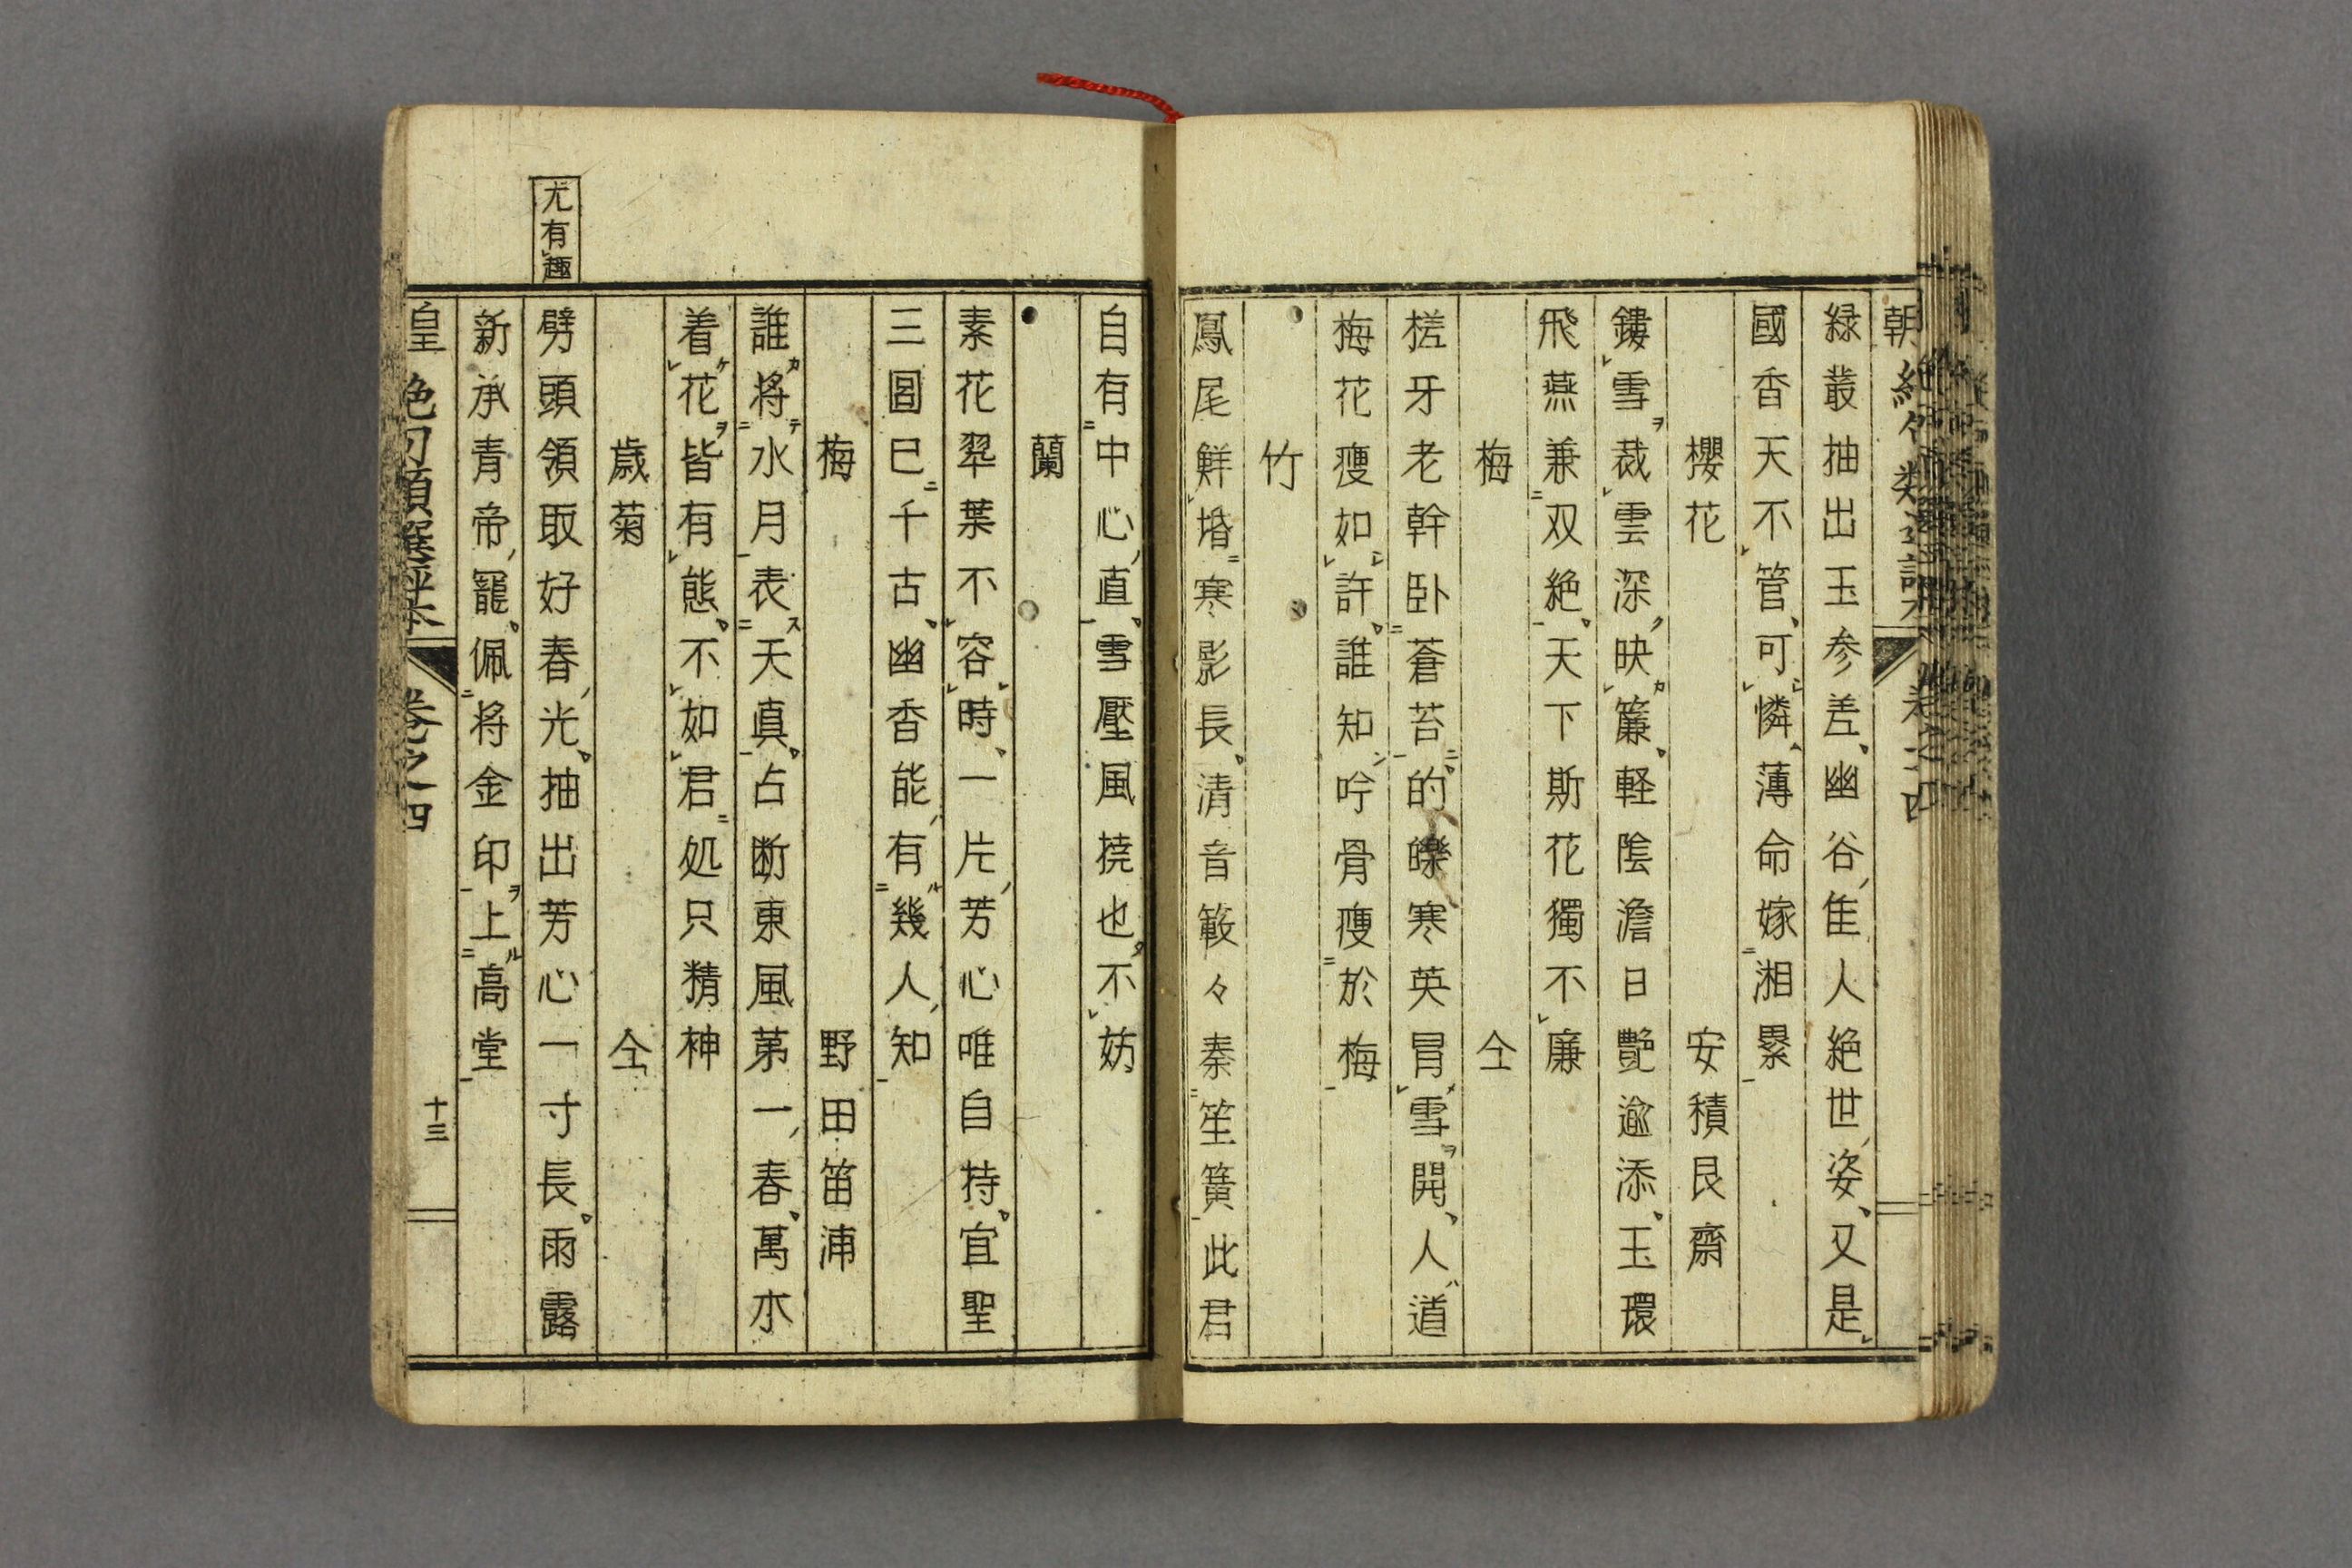 緑叢抽出玉参差幽谷佳人絶世姿又是
國香天不管可憐薄命嫁湘纍
櫻花 安積艮齋
鏤雪裁雲深映簾軽陰澹日艶逾添玉環
飛燕兼双絶天下斯花獨不廉
梅 仝
槎牙老幹臥蒼苔的皪寒英冒雪開人道
梅花痩如許誰知吟骨痩於梅
竹
鳳尾鮮㨆寒影長清音簌々秦笙簧此君
自有中心直雪壓風撓也不妨
蘭
素花翠葉不容時一片芳心唯自持宣聖
三圖巳千古幽香能有幾人知
梅 野田笛浦
誰将水月表天真占断東風苐一春萬木
着花皆有態不如君処只精神
歳菊 仝
尤有趣
劈頭領取好春光抽出芳心一寸長雨露
新承青帝寵佩将金印上高堂
卷之四
十三